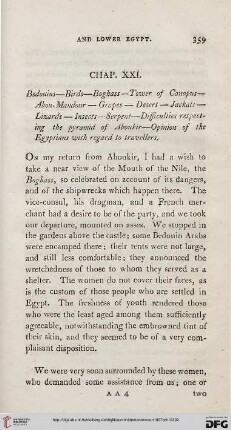 AND LOWER EGYPT. 359
CHAP. XXI.
Bedouins—Birds—Boghass—Tower of Canopus—
Abou-Mandour — Grapes — Desert — Jackals —
Lizards — Insects — Serpent—Difficulties respect-
ing the pyramid of Aboukir—Opinion of the
Egyptians with regard to travellers.
ON my return from Aboukir, I had a wish to
take a near view of the Mouth of the Nile, the
Boghass, so celebrated on account of its dangers,
and of the shipwrecks which happen there. The
vice-consul, his drogman, and a French mer-
chant had a desire to be of the party, and we took
our departure, mounted on asses. We stopped in
the gardens above the castle; some Bedouin Arabs
were encamped there; their tents were not large,
and still less comfortable; they announced the
wretchedness of those to whom they served as a
shelter. The women do not cover their faces, as
is the custom of those people who are settled in
Egypt. The freshness of youth rendered those
who were the least aged among them sufficiently
agreeable, notwithstanding the embrowned tint of
their skin, and they seemed to be of a very com-
plaisant disposition.
We were very soon surrounded by these women,
who demanded some assistance from us; one or
A A 4 two
UNIVERSITÄTS-
BIBLIOTHEK
HEIDELBERG
DFG